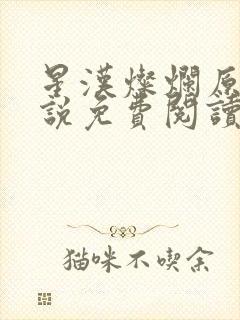 星漢燦爛原
說免費閱讀
猫咪不喫余